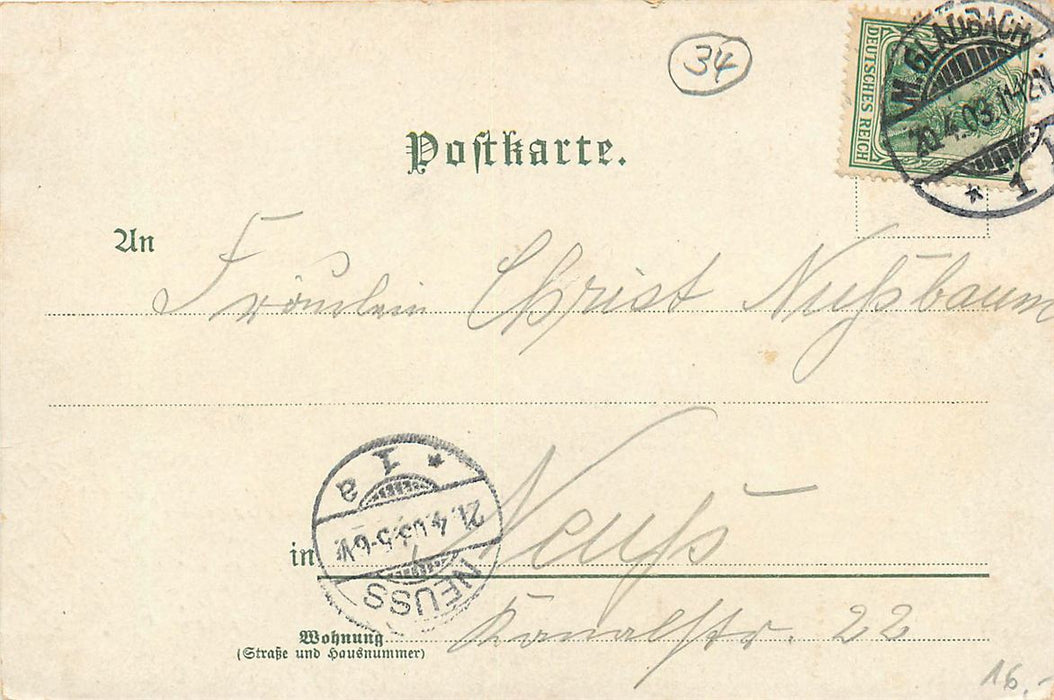 34
DEUTSCHES REICH
M. GLADBACH.
20.4.03. 11-12N
* 1
Postkarte.
An
Fräulein Christ Nußbaum
* 1 a
21.4.03. 5-6V
NEUSS
in Neußs
Wohnung
(Straße und Hausnummer)
Kanalstr. 22
16,-